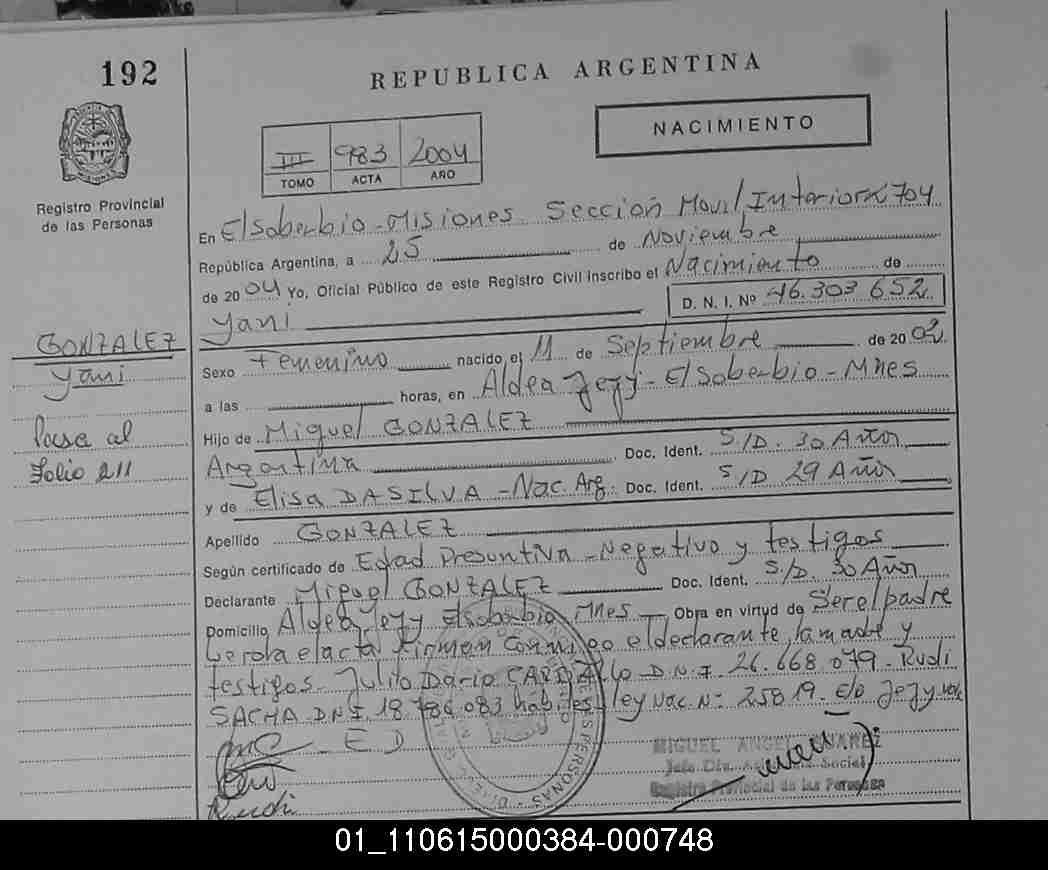 192
REPUBLICA ARGENTINA
NACIMIENTO
III 983 2004
TOMO ACTA AÑO
Registro Provincial
de las Personas
En El Soberbio - Misiones Sección Movil Interior 704
República Argentina, a 25 de Noviembre
de 2004 Yo, Oficial Público de este Registro Civil Inscribo el Nacimiento de
Yani D. N. I. Nº 46.303 652
GONZALEZ
Yani
Pasa al
Folio 211
Sexo Femenino nacido el 11 de Septiembre de 2002
a las horas, en Aldea Jejy - El Soberbio - Mnes
Hijo de Miguel GONZALEZ
Argentina Doc. Ident. S/D. 30 Años
y de Elisa DA SILVA - Nac. Arg. Doc. Ident. S/D 29 Años
Apellido GONZALEZ
Según certificado de Edad Presuntiva - Negativo y testigos
Declarante Miguel GONZALEZ Doc. Ident. S/D. 30 Años
Domicilio Aldea Jejy El Soberbio Mnes Obra en virtud de Ser el padre
el acta Firman Conmigo el declarante, la madre y
testigos - Julio Dario D.N.I 26.668.079 - Rudi
SACHA DNI 18 786 083 ley Nac. Nº 25819.
E D
Rudi
MIGUEL ANGEL
Social
Registro Provincial de las Personas
01_110615000384-000748